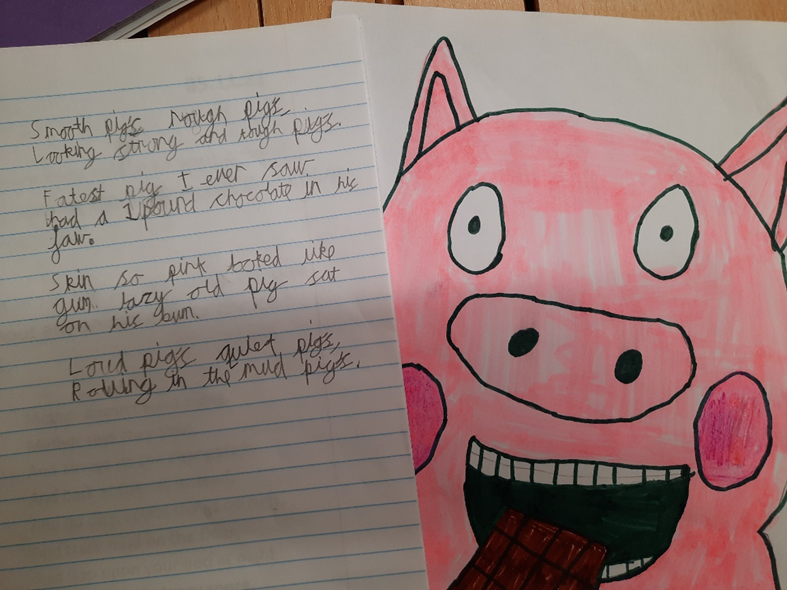 Smooth pigs rough pigs,
Looking strong and tough pigs.
Fatest pig I ever saw.
had a 1 pound chocolate in his
jaw.
Skin so pink looked like
gum. lazy old pig sat
on his bum.
Loud pigs quiet pigs,
Rolling in the mud pigs.